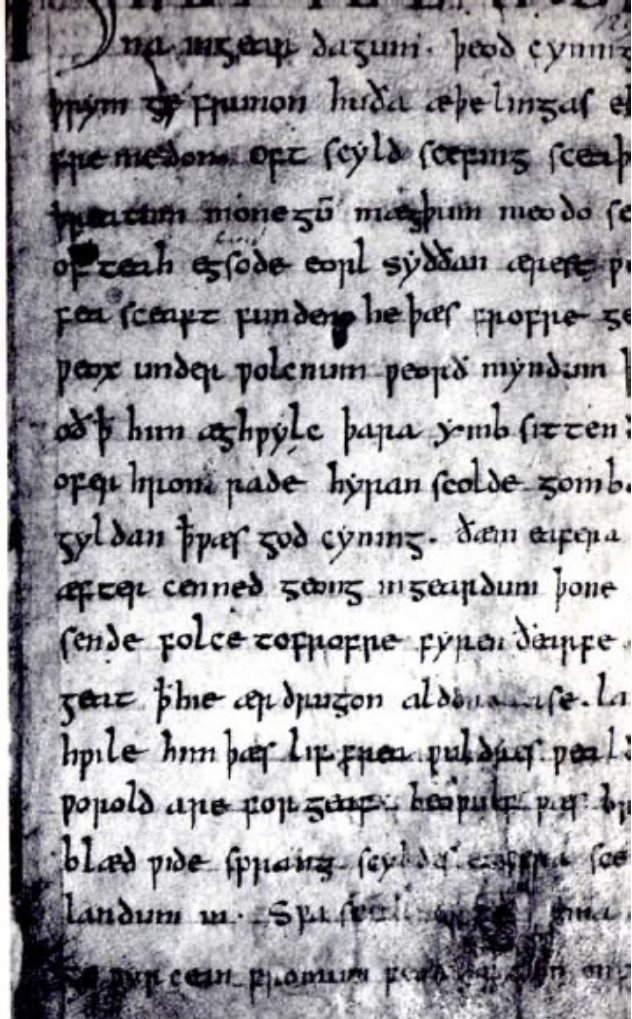 na ingear dagum. þeod cyning
þrym ge frunon huða æþelingas el
fre medon. oft scyld scefing sceaþ
þreatum monegū mægþum meodo se
of teah egsode eorl syððan ærest ƿe
fea sceaft funden he þæs frofre ge
ƿeox under ƿolcnum ƿeorð myndum þ
oð ꝥ him æghƿylc þara ymb sittend
ofer hron rade hyran scolde gomb
gyldan ꝥ ƿæs god cyning. ðæm eafera
æfter cenned geong ingeardum þone
sende folce tofrofre fyren ðearfe
geat ꝥ hie ær drugon aldor ase. la
hƿile him þæs lif frea ƿuldres ƿeald
ƿorold are for geaf. beoƿulf ƿæs br
blæd ƿide sprang scyldes eafera sce
landum in. Sƿa sceal
ge ƿyrcean fromum feoh